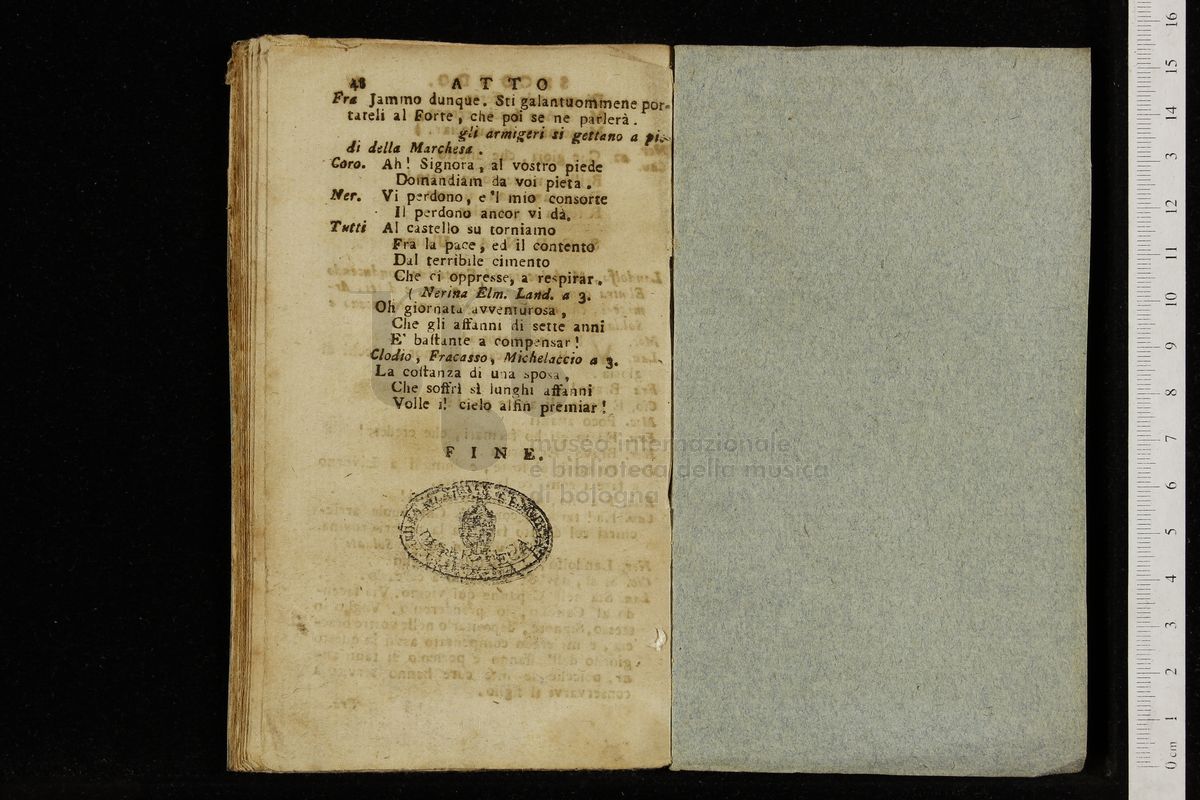 48 ATTO
Fra Jammo dunque. Sti galantuommene por-
tateli al Forte, che poi se ne parlerà.
gli armigeri si gettano a pi-
di della Marchesa.
Coro. Ah! Signora, al vostro piede
Domandiam da voi pieta.
Ner. Vi perdono, e'l mio consorte
Il perdono ancor vi dà.
Tutti Al castello su torniamo
Fra la pace, ed il contento
Dal terribile cimento
Che ci oppresse, a respirar.
( Nerina Elm. Land. a 3.
Oh giornata avventurosa,
Che gli affanni di sette anni
E' bastante a compensar!
Clodio, Fracasso, Michelaccio a 3.
La costanza di una sposa,
Che soffrì sì lunghi affanni
Volle il cielo alfin premiar!
FINE.
museo internazionale
e biblioteca della musica
di bologna
0 cm 1 2 3 4 5 6 7 8 9 10 11 12 13 14 15 16